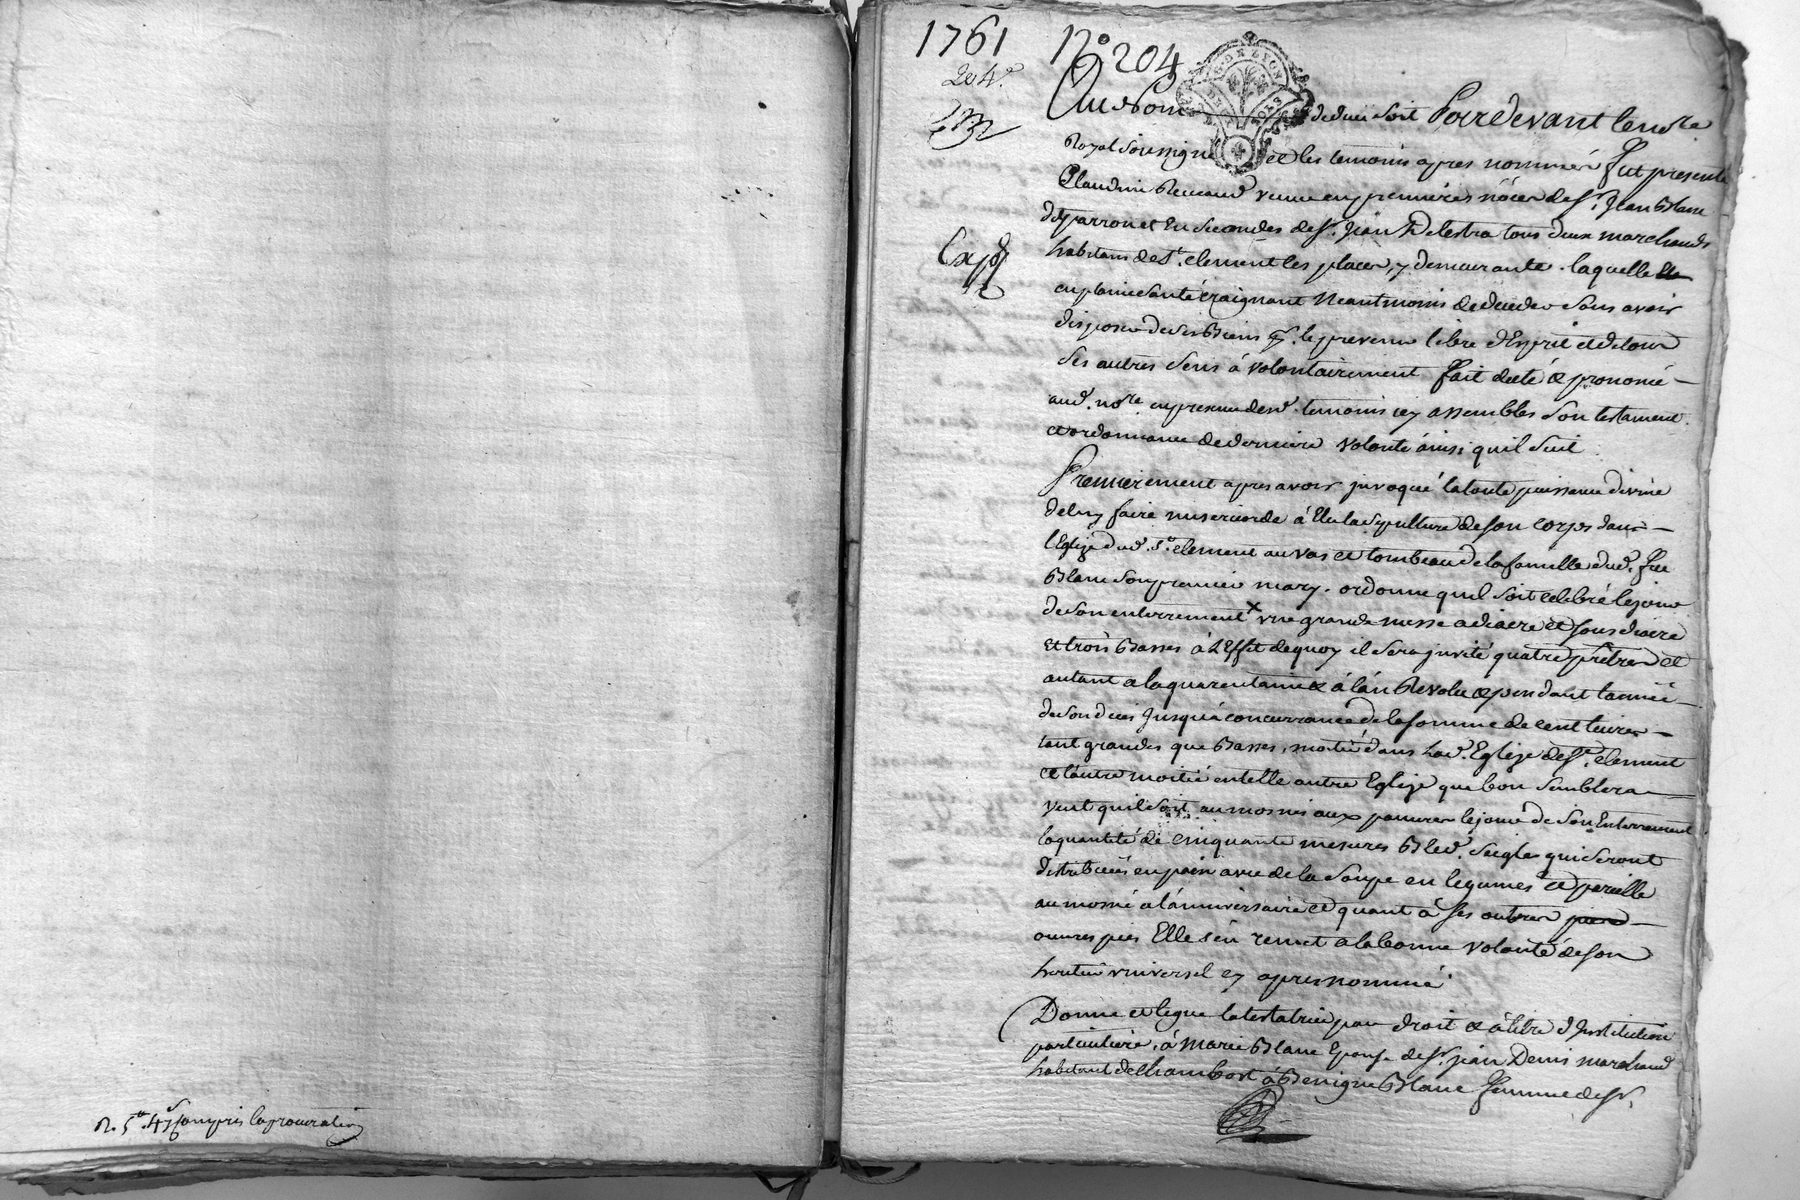 R. 5ᵗᵗ. 4ˢ compris la procuration
1761 N° 204
204e.
Expé
GEN. DE LYON
Au Nom de dieu soit Pardevant le nore
Royal soussigné et les temoins apres nommés fut presente
Claudine Renaud veuve en premieres nôces de sr. Jean Blanc
et en secondes de sr. Jean Delestra tous deux marchands
habitans de St. clement les places, y demeurante. laquelle
en pleine santé craignant Neantmoins de deceder sans avoir
disposer de ses Biens qu. le prevenu libre d'Esprit et de tous
ses autres sens à volontairement fait dicté & prononcé
aud. nore. en presence desd. temoins icy assembles son testament
et ordonnance de derniere volonté ainsi quil suit
Premierement apres avoir jnvoqué la toute puissance divine
de luy faire misericorde à Elu la sepulture de son corps dans
l'Eglize dud. St. clement au vas et tombeau de la famille dud. feu
Blanc son premier mary. ordonne quil soit celebré le jour
de son enterrement x vne grande messe a diacre et sous diacre
et trois Basses à l'Effet de quoy il sera jnvité quatre prêtres et
autant a la quarantaine & à l'an Revolu & pendant l'année
de son deces Jusqu'a concurrance de la somme de cent livres
tant grandes que Basses, moitié dans lad. Eglize de St. clement
et l'autre moitié en telle autre Eglize que bon semblera
veut quil soit aumosnés aux pauvres le jour de son Enterrement
la quantité de cinquante mesures Bled. seigle qui seront
distribuées en pain avec de la soupe en legumes et pareille
aumosne a l'anniversaire et quant à ses autres
œuvres pies Elle s'en remet a la bonne volonté de son
heritier vniversel cy apres nommé
Donne et legue la testatrice par droit & à titre d'Jnstitution
particuliere, à Marie Blanc Epouse de sr. jean Denis marchand
habitant de Chambost à Benigne Blanc femme de sr.